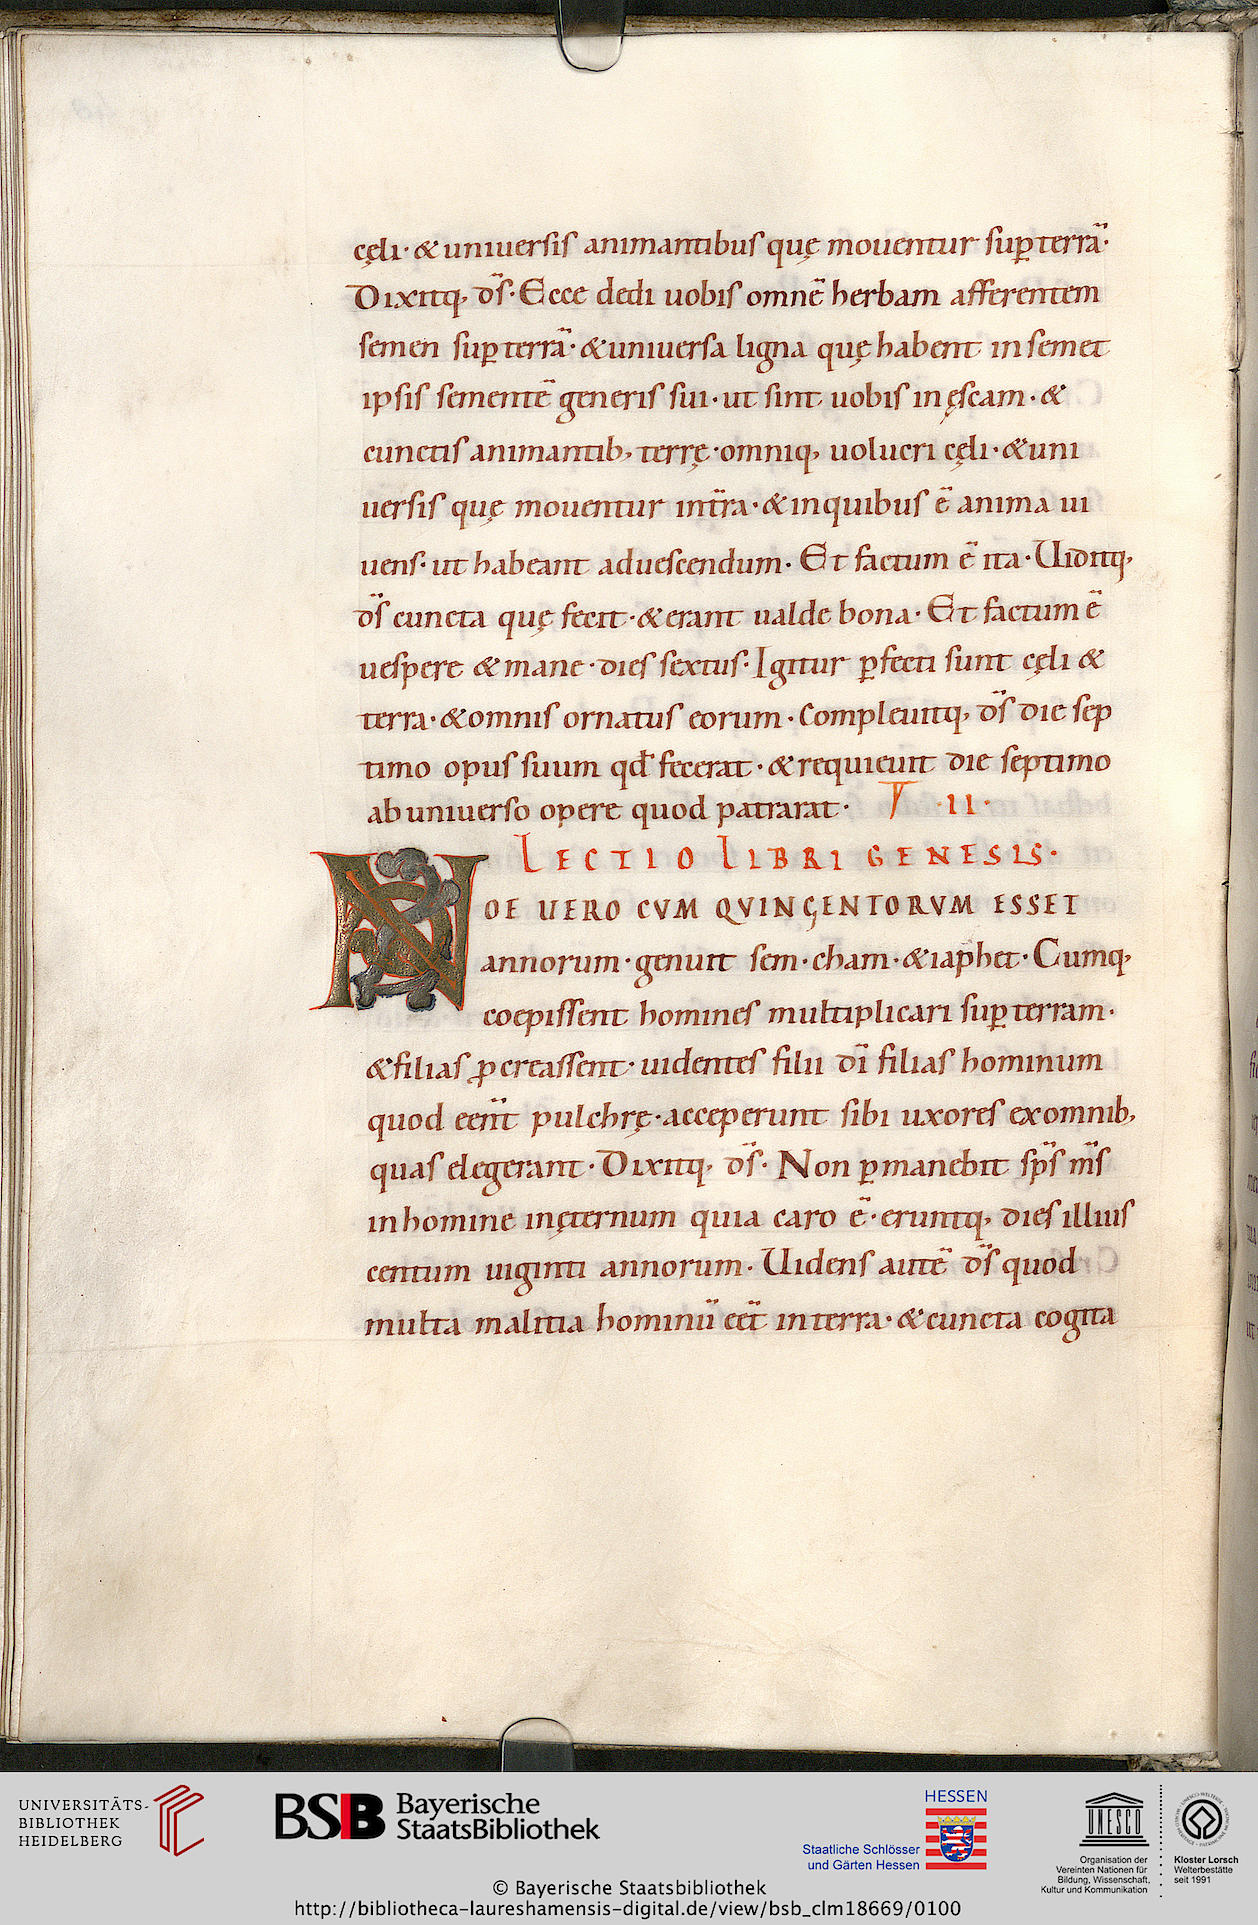 cęli· & uniuersis animantibus quę mouentur sup̲ terrā·
Dixitq; d̄s· Ecce dedi uobis omnē herbam afferentem
semen sup̲ terrā· & uniuersa ligna quę habent in semet
ipsis sementē generis sui· ut sint uobis in ęscam· &
cunctis animantib; terrę· omniq; uolucri cęli· & uni
uersis quę mouentur int̄ra· & inquibus ē anima ui
uens· ut habeant aduescendum· Et factum ē ita· Uiditq;
d̄s cuncta quę fecit· & erant ualde bona· Et factum ē
uespere & mane· dies sextus· Igitur p̲fecti sunt cęli &
terra· & omnis ornatus eorum· Compleuitq; d̄s die sep
timo opus suum qđ fecerat· & requieuit die septimo
ab uniuerso opere quod patrarat· T ·II·
LECTIO LIBRI GENESIS·
NOE UERO CVM QVINGENTORVM ESSET
annorum· genuit sem· cham· & iaphet· Cumq;
coepissent homines multiplicari sup̲ terram·
& filias ꝓcreassent· uidentes filii dī filias hominum
quod een̄t pulchrę· acceperunt sibi uxores exomnib;
quas elegerant· Dixitq; d̄s· Non p̲manebit sp̄s m̄s
in homine inęternum quia caro ē· eruntq; dies illius
centum uiginti annorum· Uidens autē d̄s quod
multa malitia hominū eet̄ in terra· & cuncta cogita
UNIVERSITÄTS-
BIBLIOTHEK
HEIDELBERG
BSB Bayerische
StaatsBibliothek
HESSEN
Staatliche Schlösser
und Gärten Hessen
UNESCO
Organisation der
Vereinten Nationen für
Bildung, Wissenschaft,
Kultur und Kommunikation
Kloster Lorsch
Welterbestätte
seit 1991
© Bayerische Staatsbibliothek
http://bibliotheca-laureshamensis-digital.de/view/bsb_clm18669/0100